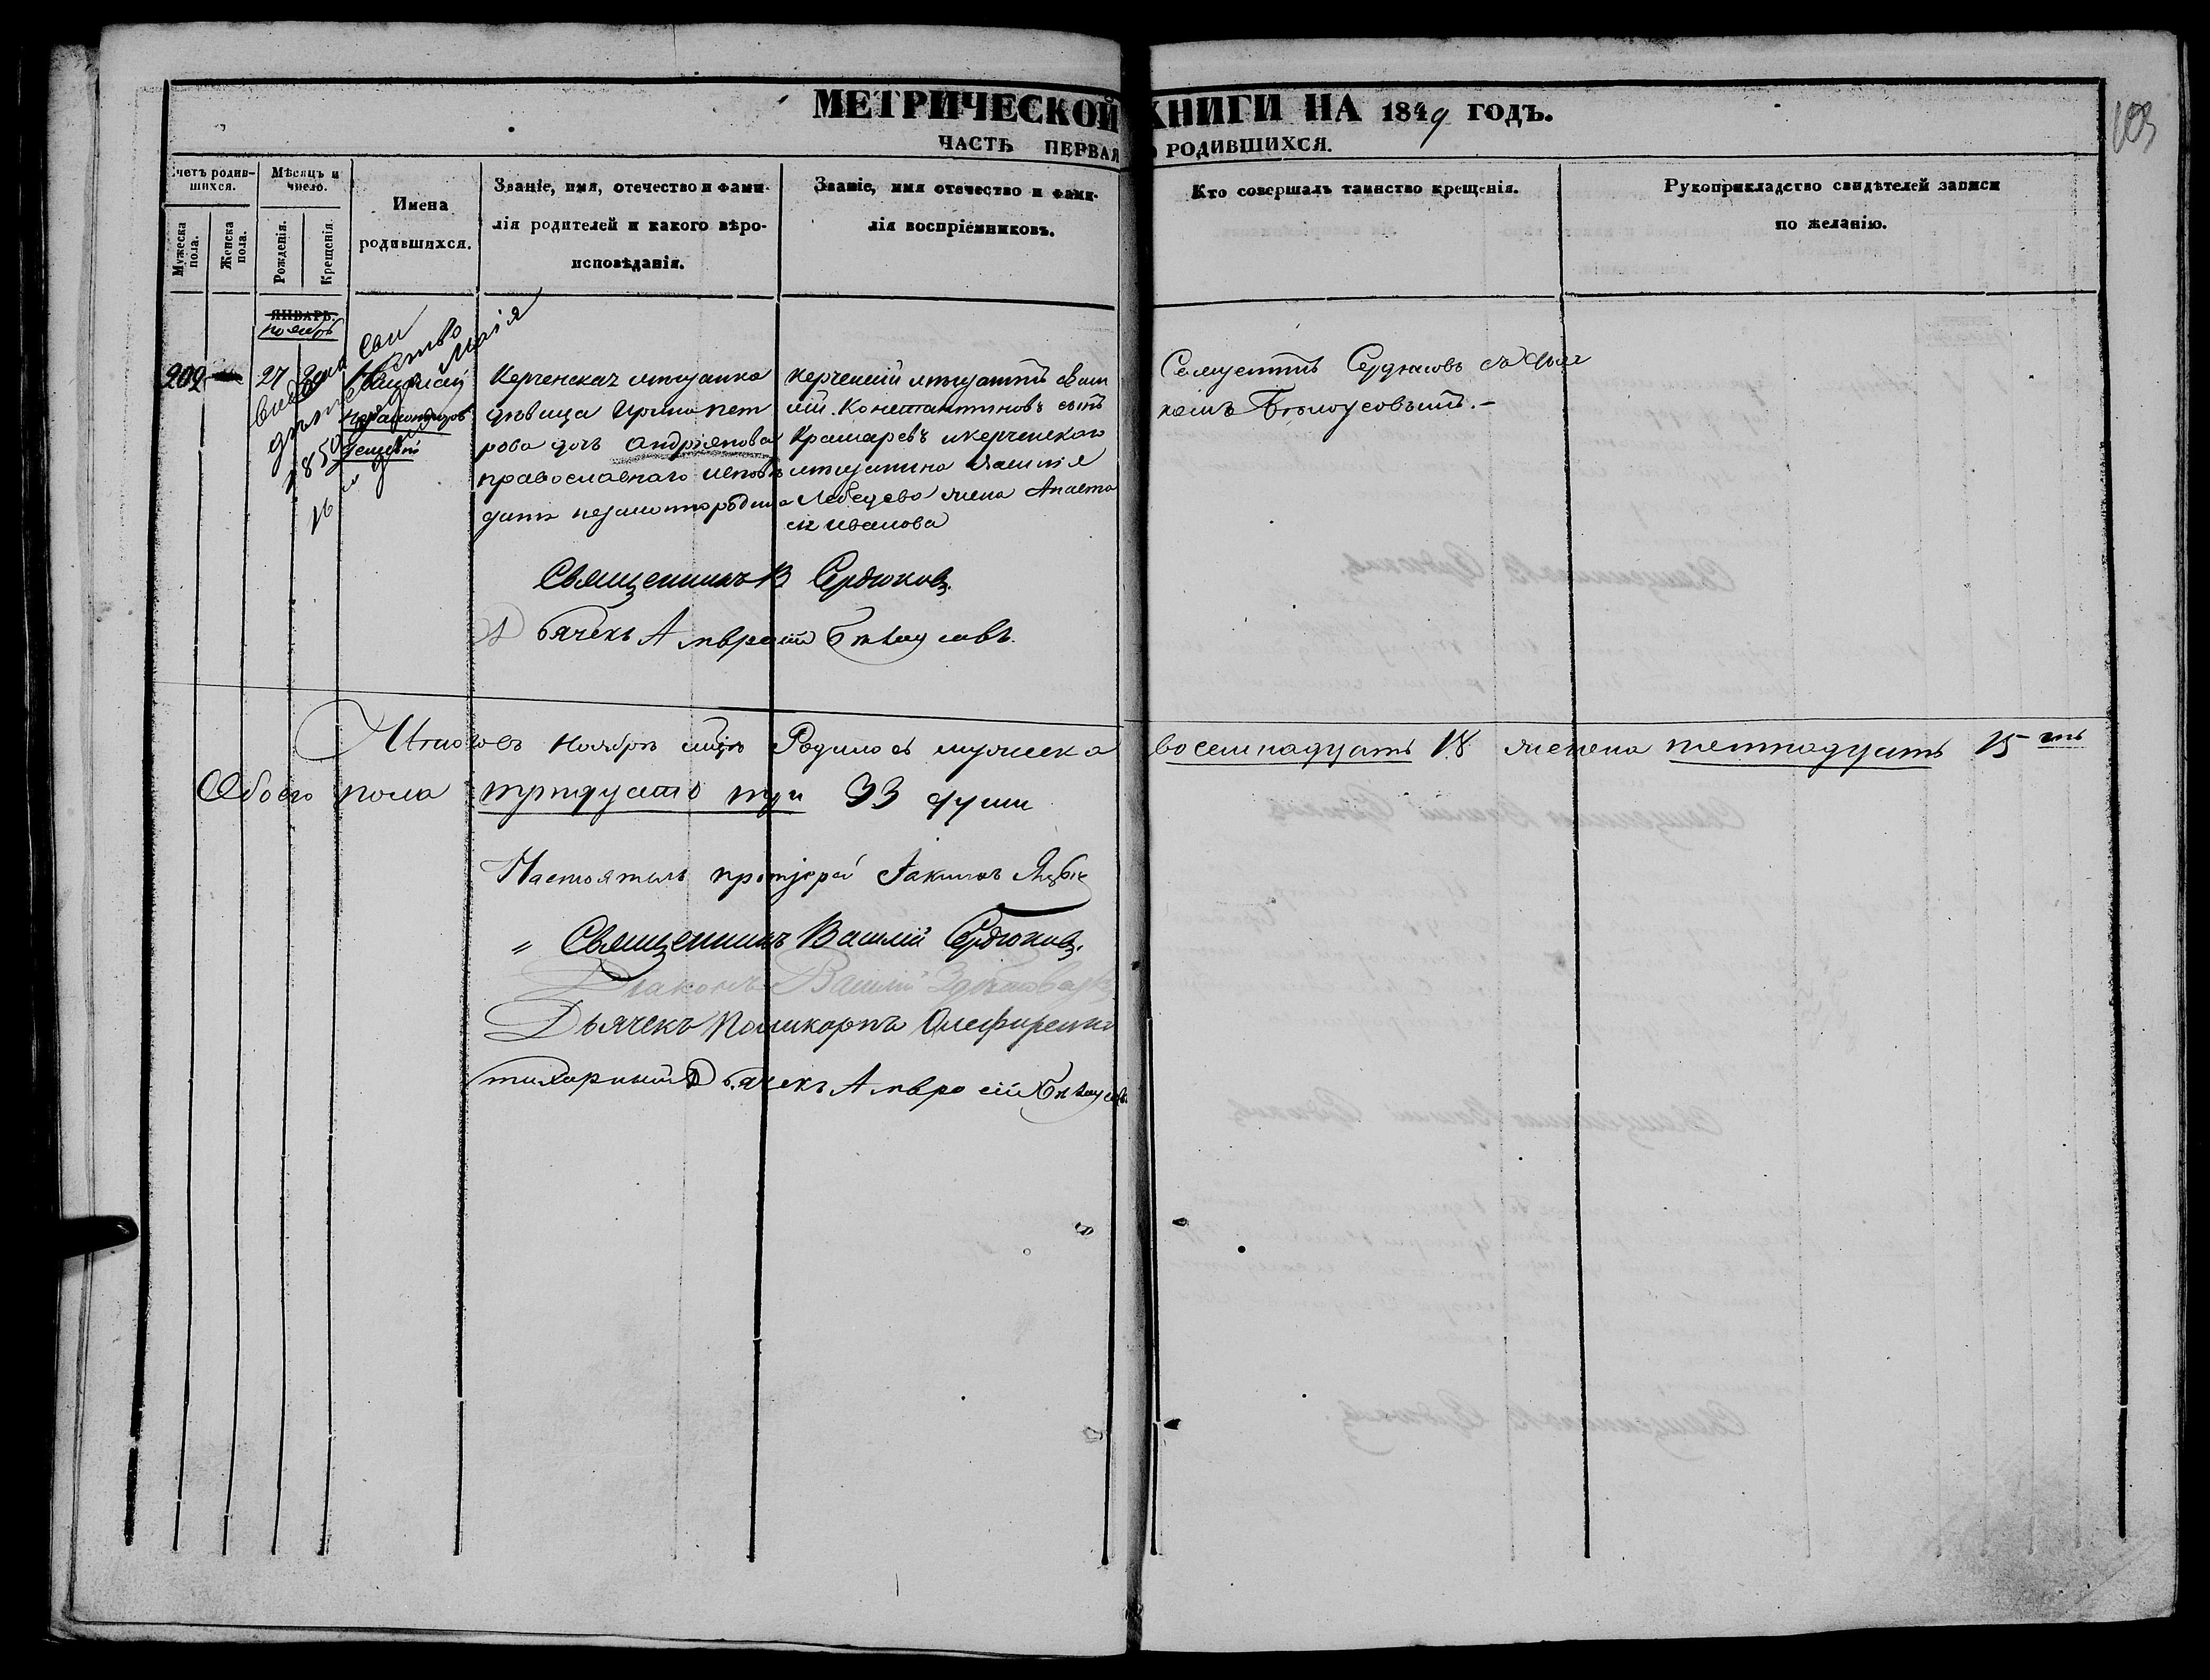 МЕТРИЧЕСКОЙ КНИГИ НА 1849 ГОДЪ.
103
ЧАСТЬ ПЕРВАЯ О РОДИВШИХСЯ.
Счетъ родив-
шихся.
Мужеска пола.
Женска пола.
Мѣсяцъ и
число.
Рожденія.
Крещенія.
Имена
родившихся.
Званіе, имя, отечество и фами-
лія родителей и какого вѣро-
исповѣданія.
Званіе, имя отечество и фами-
лія воспріемниковъ.
Кто совершалъ таинство крещенія.
Рукоприкладство свидѣтелей записи
по желанію.
ЯНВАРЬ.
ноябрь
202
27
1850
16
Керченская мещанка
девица Ирина Пет
рова дочь Андріянова
православнаго исповѣ
данія незаконнорожден
Керченскій мещанинъ Васи
лій Константиновъ сынъ
Крамаревъ и керченскаго
мещанина
Лебедева жена Анаста
сія Иванова
Священникъ Сердюковъ съ дьяч
комъ Бѣлоусовымъ. -
Священникъ В Сердюковъ.
Дьячекъ Амвросій Бѣлоусовъ.
Итого въ Ноябрѣ мцѣ Родилось мужеска восемнадцать 18 женска пятнадцать 15 ть
Обоего пола тридцать три 33 души
Настоятель протоіерей Іакимъ
„ Священникъ Василій Сердюковъ.
Діаконъ Василій
Дьячекъ Поликарпъ Олефиренко
Дьячекъ Амвросій Бѣлоусовъ